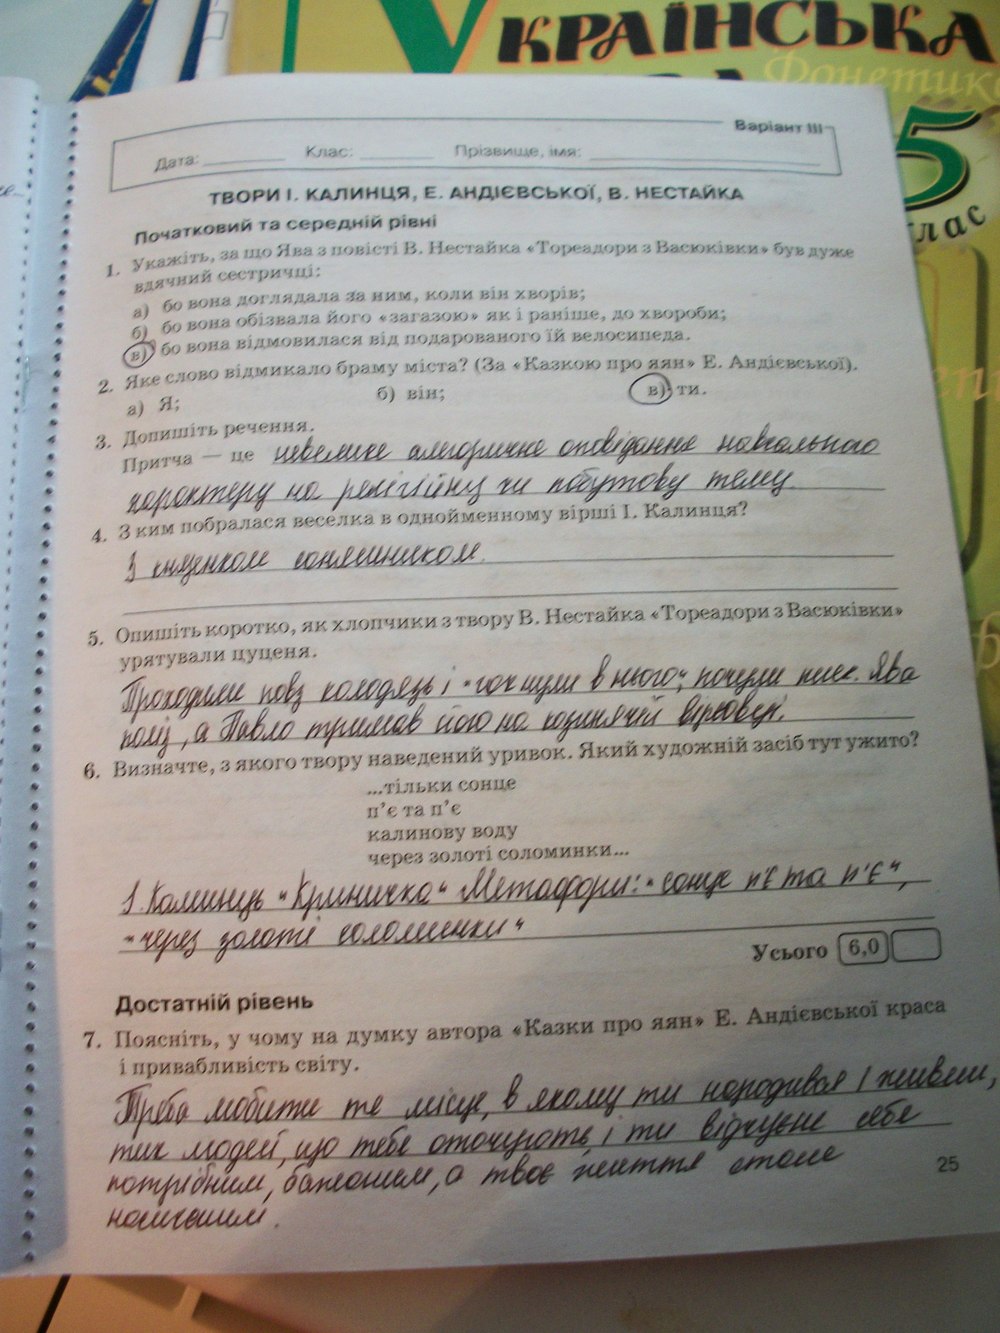 УКРАЇНСЬКА
Фонетика
5
клас
Варіант III
Дата: Клас: Прізвище, імя:
ТВОРИ І. КАЛИНЦЯ, Е. АНДІЄВСЬКОЇ, В. НЕСТАЙКА
Початковий та середній рівні
1. Укажіть, за що Ява з повісті В. Нестайка «Тореадори з Васюківки» був дуже
вдячний сестричці:
а) бо вона доглядала за ним, коли він хворів;
б) бо вона обізвала його «загазою» як і раніше, до хвороби;
в) бо вона відмовилася від подарованого їй велосипеда.
2. Яке слово відмикало браму міста? (За «Казкою про яян» Е. Андієвської).
а) Я; б) він; в) ти.
3. Допишіть речення.
Притча — це невелике алегоричне оповідання навчального
характеру на релігійну чи побутову тему.
4. З ким побралася веселка в однойменному вірші І. Калинця?
З княгенком соняшником.
5. Опишіть коротко, як хлопчики з твору В. Нестайка «Тореадори з Васюківки»
урятували цуценя.
Проходили повз колодязь і "гокнули в нього", почули писк. Ява
поліз, а Павло тримав його на козинячій вірьовці.
6. Визначте, з якого твору наведений уривок. Який художній засіб тут ужито?
...тільки сонце
п'є та п'є
калинову воду
через золоті соломинки...
І. Калинець "Криничка" Метафори: "сонце п'є та п'є",
"через золоті соломинки"
Усього 6,0
Достатній рівень
7. Поясніть, у чому на думку автора «Казки про яян» Е. Андієвської краса
і привабливість світу.
Треба любити те місце, в якому ти народився і живеш,
тих людей, що тебе оточують, і ти відчуєш себе
потрібним, бажаним, а твоє життя стане
25